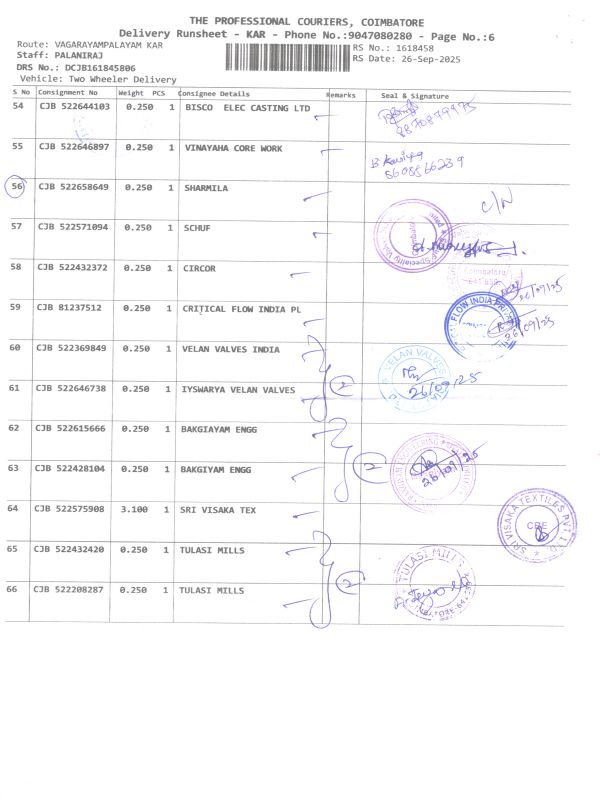 THE PROFESSIONAL COURIERS, COIMBATORE
Delivery Runsheet - KAR - Phone No.:9047080280 - Page No.:6
Route: VAGARAYAMPALAYAM KAR
RS No.: 1618458
Staff: PALANIRAJ
RS Date: 26-Sep-2025
DRS No.: DCJB161845806
Vehicle: Two Wheeler Delivery
S No Consignment No Weight PCS Consignee Details Remarks Seal & Signature
54 CJB 522644103 0.250 1 BISCO ELEC CASTING LTD
8870879975
55 CJB 522646897 0.250 1 VINAYAHA CORE WORK
8608566239
56 CJB 522658649 0.250 1 SHARMILA
C/N
57 CJB 522571094 0.250 1 SCHUF
58 CJB 522432372 0.250 1 CIRCOR
Coimbatore
26/09/25
59 CJB 81237512 1 0.250 1 CRITICAL FLOW INDIA PL
FLOW INDIA
26/09/25
60 CJB 522369849 0.250 1 VELAN VALVES INDIA
2
VELAN VALVES
26/09/25
61 CJB 522646738 0.250 1 IYSWARYA VELAN VALVES
62 CJB 522615666 0.250 1 BAKGIAYAM ENGG
2
26/09/25
63 CJB 522428104 0.250 1 BAKGIYAM ENGG
64 CJB 522575908 3.100 1 SRI VISAKA TEX
SRI VISAKA TEXTILES PVT LTD
CBE
65 CJB 522432420 0.250 1 TULASI MILLS
2
TULASI MILLS
66 CJB 522208287 0.250 1 TULASI MILLS